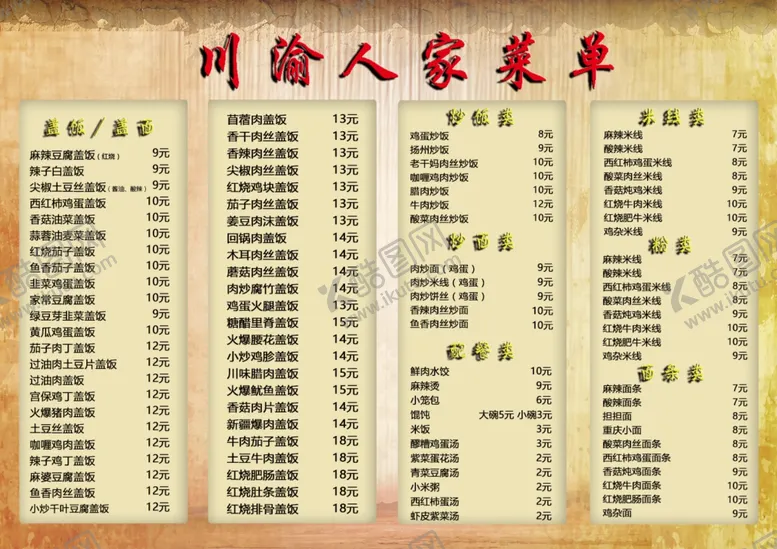 川渝人家菜单
盖饭/盖面
麻辣豆腐盖饭(红烧) 9元
辣子白盖饭 9元
尖椒土豆丝盖饭(酱油、酸辣) 9元
西红柿鸡蛋盖饭 10元
香菇油菜盖饭 10元
蒜蓉油麦菜盖饭 10元
红烧茄子盖饭 10元
鱼香茄子盖饭 10元
韭菜鸡蛋盖饭 10元
家常豆腐盖饭 10元
绿豆芽韭菜盖饭 9元
黄瓜鸡蛋盖饭 10元
茄子肉丁盖饭 12元
过油肉土豆片盖饭 12元
过油肉盖饭 12元
宫保鸡丁盖饭 12元
火爆猪肉盖饭 12元
土豆丝盖饭 12元
咖喱鸡肉盖饭 12元
辣子鸡丁盖饭 12元
麻婆豆腐盖饭 12元
鱼香肉丝盖饭 12元
小炒千叶豆腐盖饭 12元
苜蓿肉盖饭 13元
香干肉丝盖饭 13元
香辣肉丝盖饭 13元
尖椒肉丝盖饭 13元
红烧鸡块盖饭 13元
茄子肉丝盖饭 13元
姜豆肉沫盖饭 13元
回锅肉盖饭 14元
木耳肉丝盖饭 14元
蘑菇肉丝盖饭 14元
肉炒腐竹盖饭 14元
鸡蛋火腿盖饭 13元
糖醋里脊盖饭 15元
火爆腰花盖饭 14元
小炒鸡胗盖饭 14元
川味腊肉盖饭 15元
火爆鱿鱼盖饭 15元
香菇肉片盖饭 14元
新疆爆肉盖饭 14元
牛肉茄子盖饭 18元
土豆牛肉盖饭 18元
红烧肥肠盖饭 18元
红烧肚条盖饭 18元
红烧排骨盖饭 18元
炒饭类
鸡蛋炒饭 8元
扬州炒饭 9元
老干妈肉丝炒饭 10元
咖喱鸡肉炒饭 10元
腊肉炒饭 10元
牛肉炒饭 12元
酸菜肉丝炒饭 10元
炒面类
肉炒面(鸡蛋) 9元
肉炒米线(鸡蛋) 9元
肉炒饼丝(鸡蛋) 9元
香辣肉丝炒面 10元
鱼香肉丝炒面 10元
配餐类
鲜肉水饺 10元
麻辣烫 9元
小笼包 6元
馄饨 大碗5元 小碗3元
米饭 3元
醪糟鸡蛋汤 3元
紫菜蛋花汤 2元
青菜豆腐汤 2元
小米粥 2元
西红柿蛋汤 2元
虾皮紫菜汤 2元
米线类
麻辣米线 7元
酸辣米线 7元
西红柿鸡蛋米线 8元
酸菜肉丝米线 8元
香菇炖鸡米线 9元
红烧牛肉米线 10元
红烧肥牛米线 10元
鸡杂米线 9元
粉类
麻辣米线 7元
酸辣米线 7元
西红柿鸡蛋米线 8元
酸菜肉丝米线 8元
香菇炖鸡米线 9元
红烧牛肉米线 10元
红烧肥牛米线 10元
鸡杂米线 9元
面条类
麻辣面条 7元
酸辣面条 7元
担担面 8元
重庆小面 8元
酸菜肉丝面条 8元
西红柿鸡蛋面条 8元
香菇炖鸡面条 9元
红烧牛肉面条 10元
红烧肥肠面条 10元
鸡杂面 9元
酷图网
www.ikutu.com